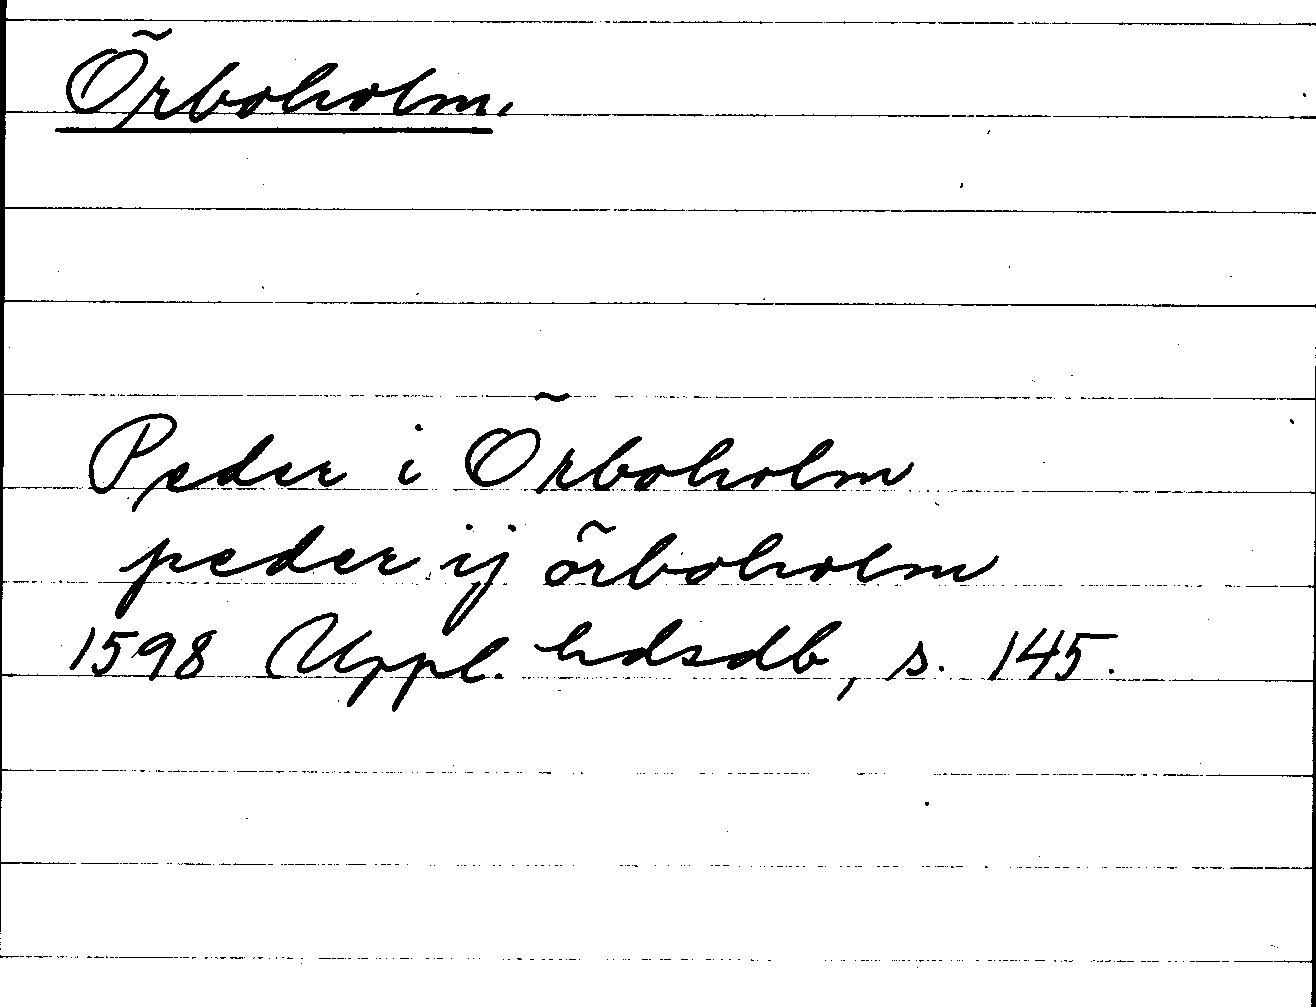 Örboholm.
Peder i Örboholm
peder ij örboholm
1598 Uppl. hdsdb, s. 145.